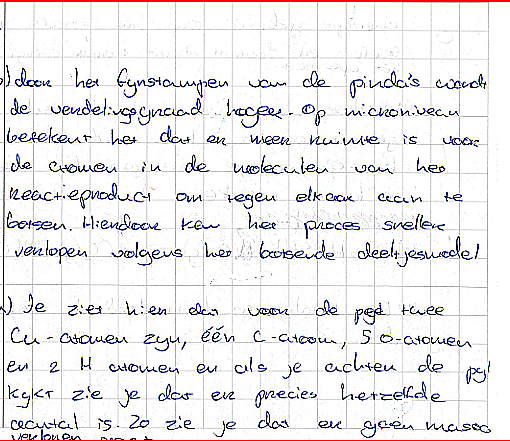 ) door het fijnstampen van de pinda's wordt
de verdelingsgraad hoger. Op microniveau
betekent het dat er meer ruimte is voor
de atomen in de moleculen van het
reactieproduct om tegen elkaar aan te
botsen. Hierdoor kan het proces sneller
verlopen volgens het botsende deeltjesmodel
) Je ziet hier dat voor de pijl twee
Cu-atomen zijn, één C-atoom, 5 O-atomen
en 2 H atomen en als je achter de pijl
kijkt zie je dat er precies hetzelfde
aantal is. Zo zie je dat er geen massa
verloren